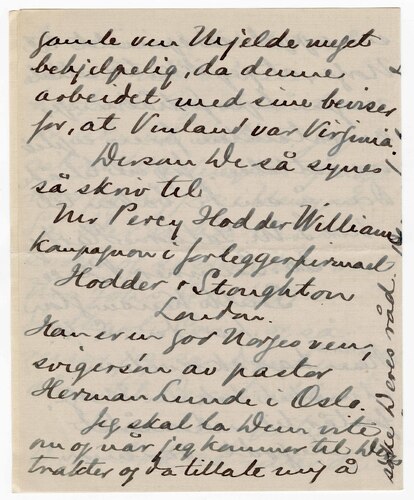 gamle ven Mjelde meget
behjelpelig, da denne
arbeidet med sine beviser
for, at Vinland var Virginia.
Dersom De så synes
så skriv til
Mr Percy Hodder Williams
kompagnon i forleggerfirmaet
Hodder & Stoughton
London.
Han er en god Norgesven,
svigersøn av pastor
Herman Lunde i Oslo.
Jeg skal la Dem vite
om og når jeg kommer til De
trakter og da tillate mig å
søke Deres råd.